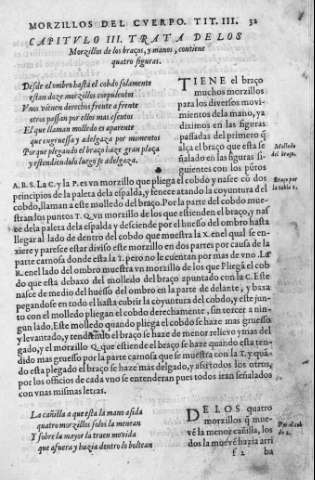 MORZILLOS DEL CVERPO. TIT. III. 32
CAPITVLO III. TRATA DE LOS
Morzillos de los braços, y manos, contiene
quatro figuras.
Desde el ombro hasta el cobdo solamente
estan doze morzillos corpulentos
Vnos vienen derechos frente a frente
otros passan por ellos mas esentos
El que llaman molledo es aparente
que engruessa y adelgaza por momentos
Porque plegando el braço haze gran plaça
y estendiendolo luego se adelgaza.
TIENE el braço
muchos morzillos
para los diversos movi-
mientos de la mano, ya
diximos en las figuras
passadas del primero q̃
alça el braço que esta se
ñalado en las figuras si-
guientes con los puros
Molledo
del braço.
Braço por
la tabla 1.
A. B. S. La C. y la P. es vn morzillo que pliega el cobdo y nasce cō dos
principios de la paleta dela espalda, y fenece atando la coyuntura del
cobdo, llaman a este molledo del braço. Por la parte del cobdo mues-
tran los puntos T. Q. vn morzillo de los que estienden el braço, y nas
ce dela paleta dela espalda y desciende por el huesso del ombro hasta
llegar al lado de dentro del cobdo que muestra la X. enel qual se en-
xiere y paresce estar diviso este morzillo en dos partes por causa de la
parte carnosa donde esta la T. pero no le cuentan por mas de vno. La
R. enel lado del ombro muestra vn morzillo de los que Pliegā el cob
do que esta debaxo del molledo del braço apuntado con la C. Este
nasce de medio del huesso del ombro en la parte de delante, y baxa
pegandose en todo el hasta cubrir la coyuntura del cobdo, y este jun-
to con el molledo pliegan el cobdo derechamente, sin torcer a nin-
gun lado. Este molledo quando pliega el cobdo se haze mas gruesso
y levantado, y tendiendo el braço se haze de menor relievo y mas del
gado, y el morzillo Q. que estiende el braço se haze quando esta ten-
dido mas gruesso por la parte carnosa que se muestra con la T. y quā-
do esta plegado el braço se haze mas delgado, y assi todos los otros,
por los officios de cada vno se entenderan pues todos iran señalados
con vnas mismas letras.
La cañilla a que esta la mano asida
quatro morzillos solos la menean
Y sobre la mayor la traen movida
que afuera y hazia dentro lo boltean
DE LOS quatro
morzillos q̃ mue-
ve la menor canilla, los
dos la muevē hazia arri
f 2 ba